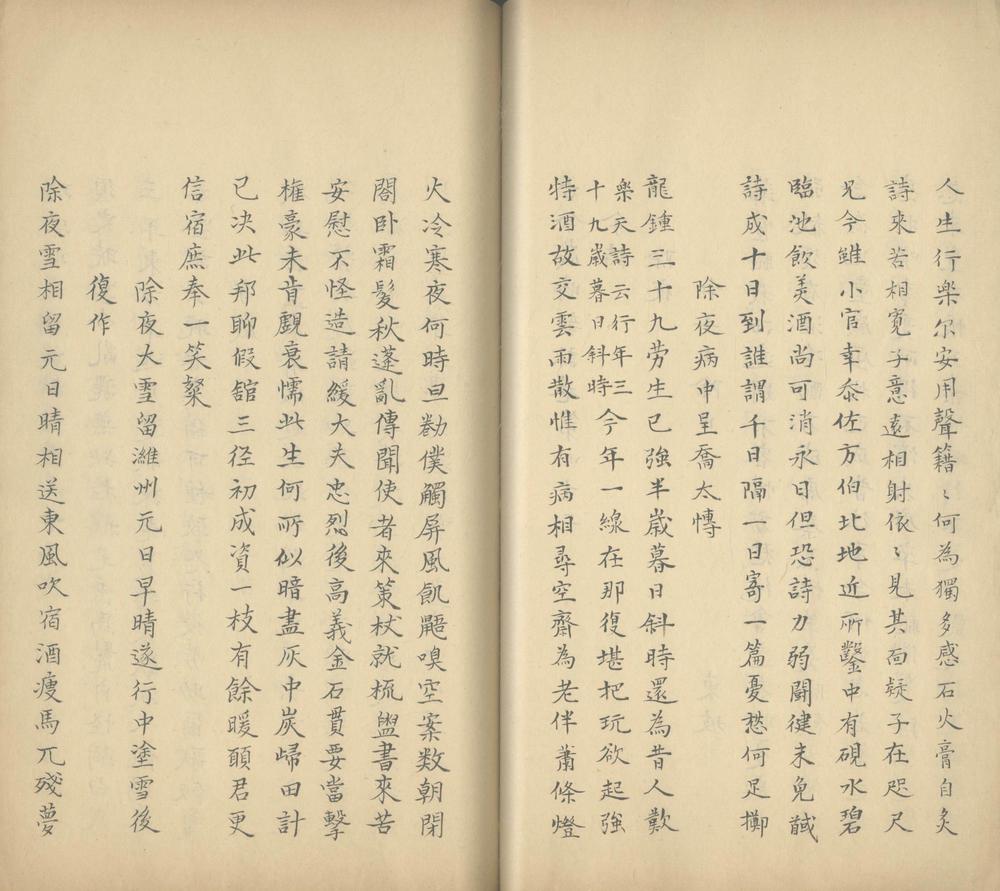 人生行樂尔安用聲籍〻何為獨多感石火膏自炙
詩來苦相寬子意遠相射依〻見其面疑子在咫尺
兄今雖小官幸忝佐方伯北地近所鑿中有硯水碧
臨池飲美酒尚可消永日但恐詩力弱闘健未免馘
詩成十日到誰謂千日隔一日寄一篇憂愁何足擲
除夜病中呈喬太博
龍鍾三十九勞生已強半歲暮日斜時還為昔人歎
樂天詩云行年三
十九歲暮日斜時
今年一線在那復堪把玩欲起強
特酒故交雲雨散惟有病相尋空齋為老伴蕭條燈
火冷寒夜何時旦勸僕觸屏風飢鼯嗅空案数朝閉
閤卧霜髮秋蓬亂傳聞使者來策杖就梳盥書來苦
安慰不怪造請緩大夫忠烈後高義金石貫要當擊
權豪未肯覷衰懦此生何所似暗盡灰中炭歸田計
已决此邦聊假舘三径初成資一枝有餘暖願君更
信宿庶奉一笑粲
除夜大雪留濰州元日早晴遂行中塗雪後
復作
除夜雪相留元日晴相送東風吹宿酒瘦馬兀殘夢